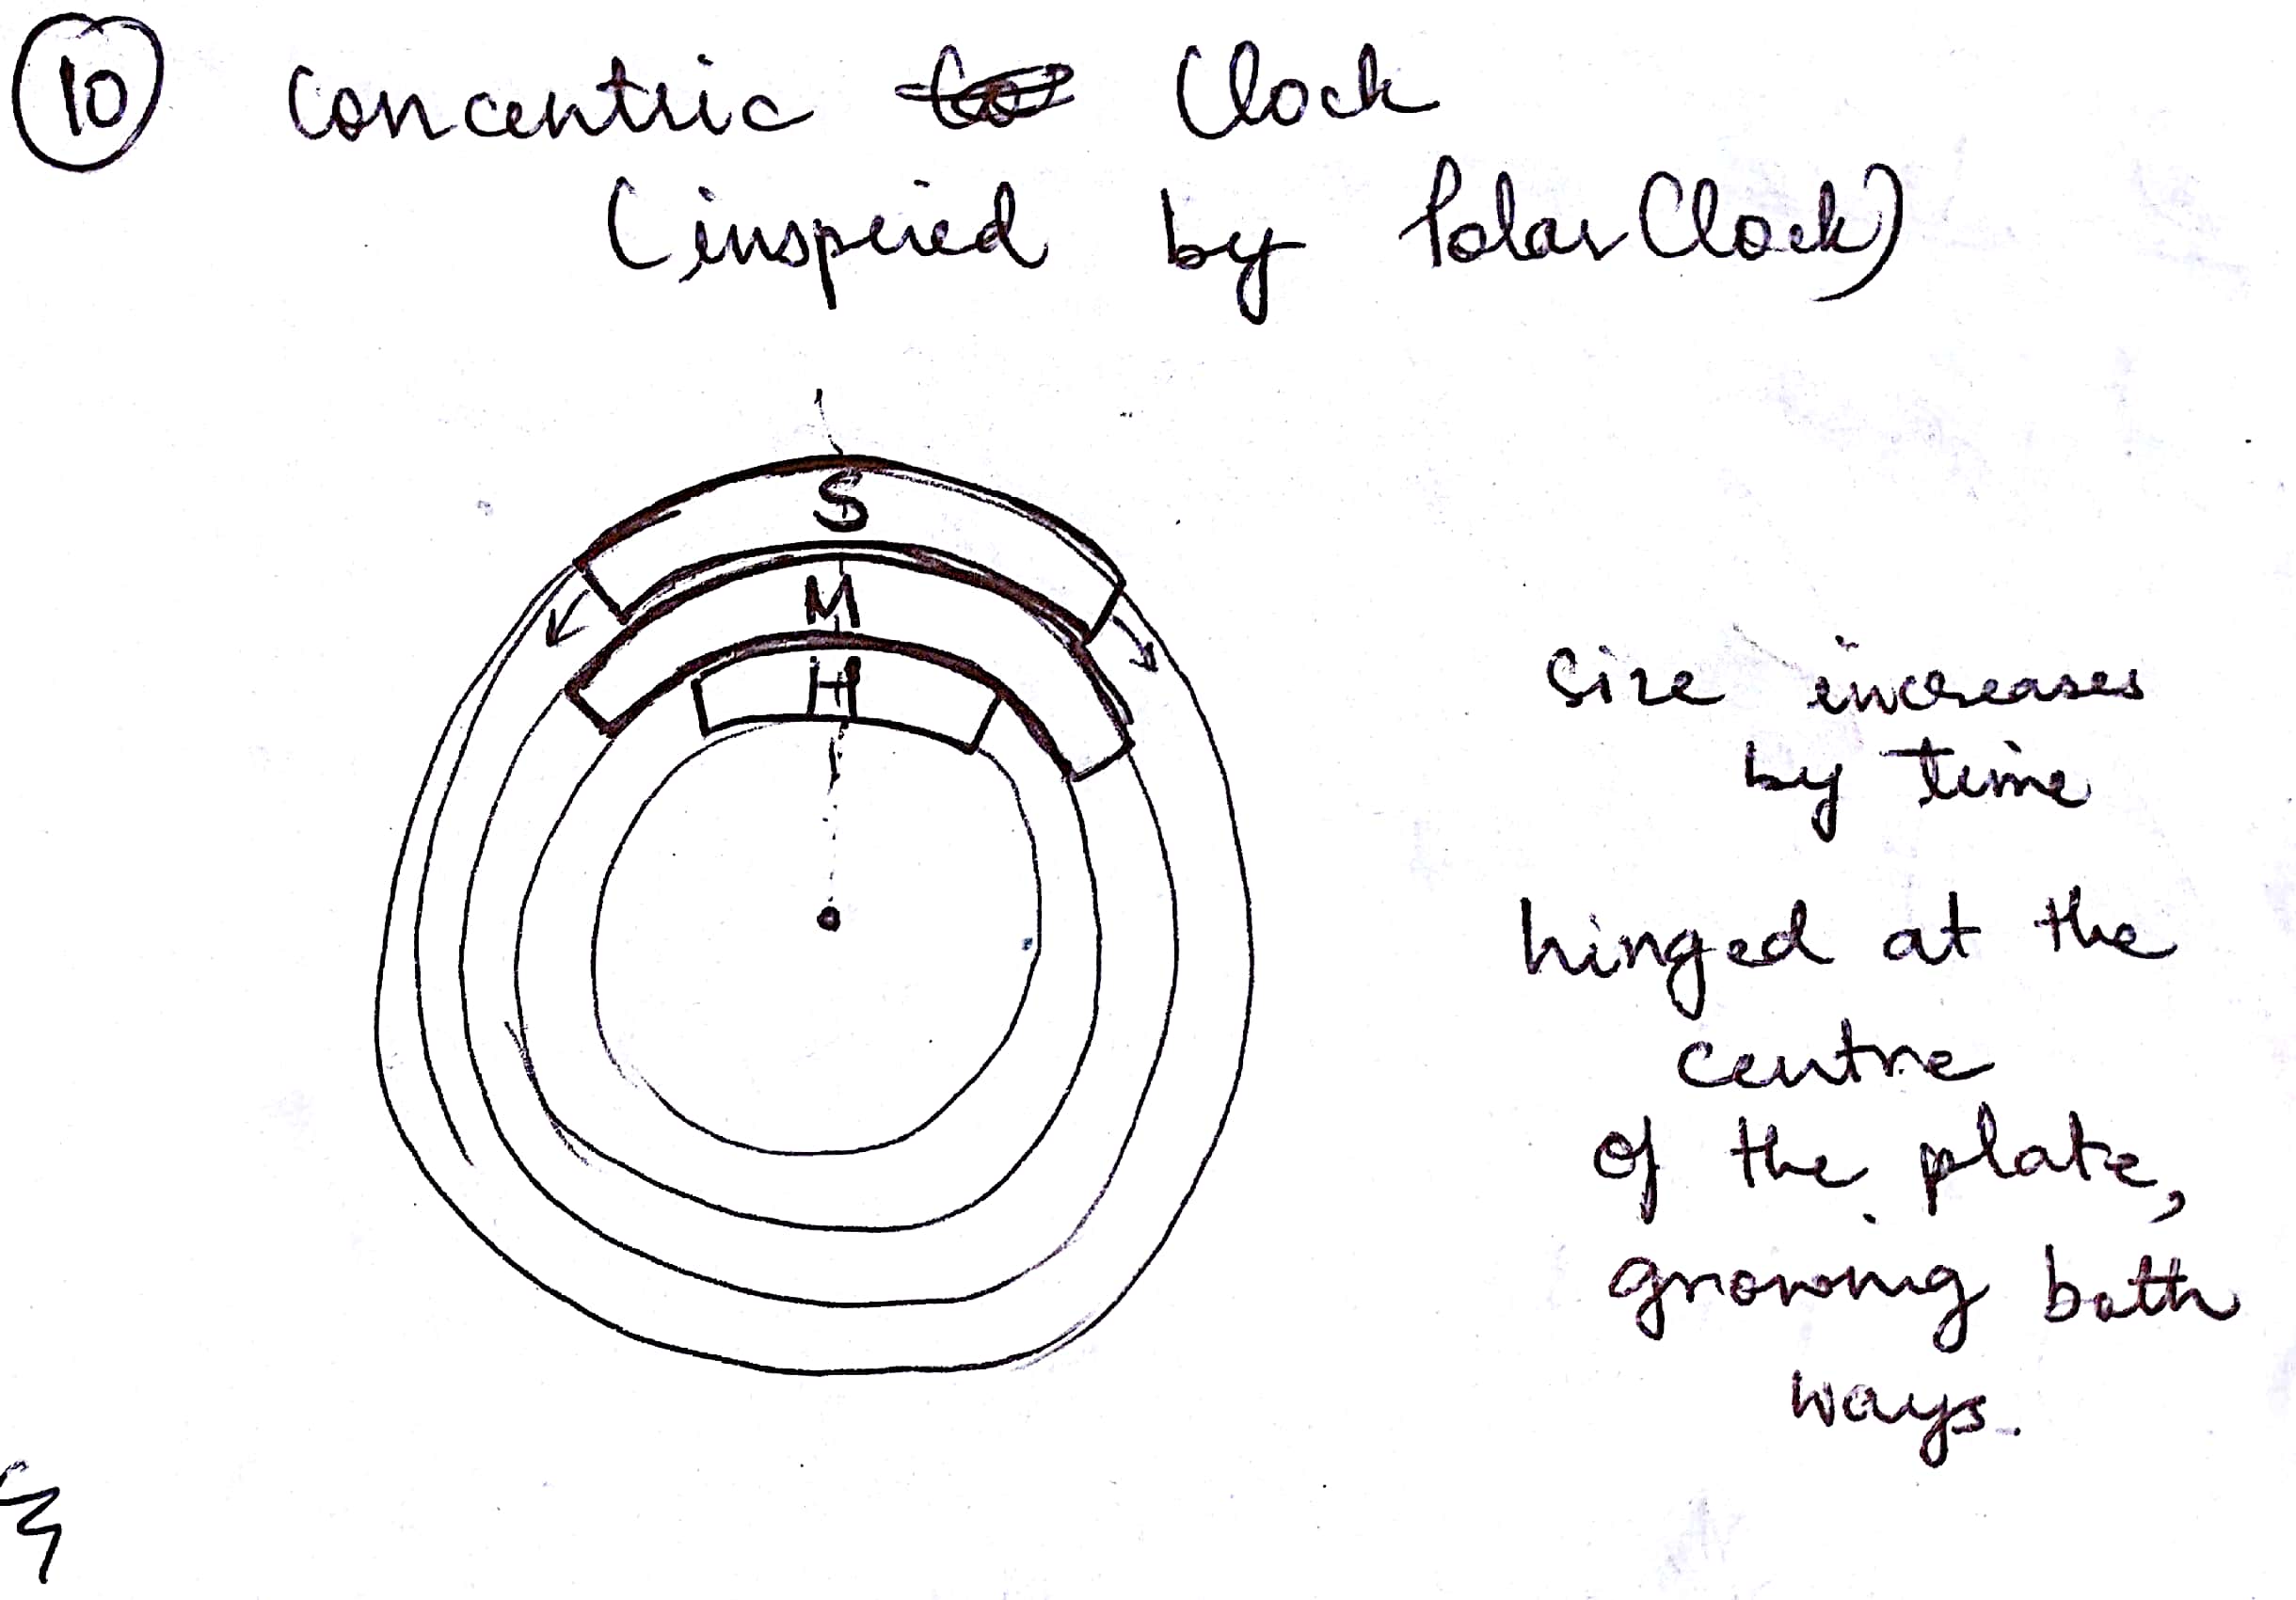 10 Concentric Clock
(inspired by Polar Clock)
S
M
H
Size increases
by time
hinged at the
centre
of the plate,
growing both
ways.